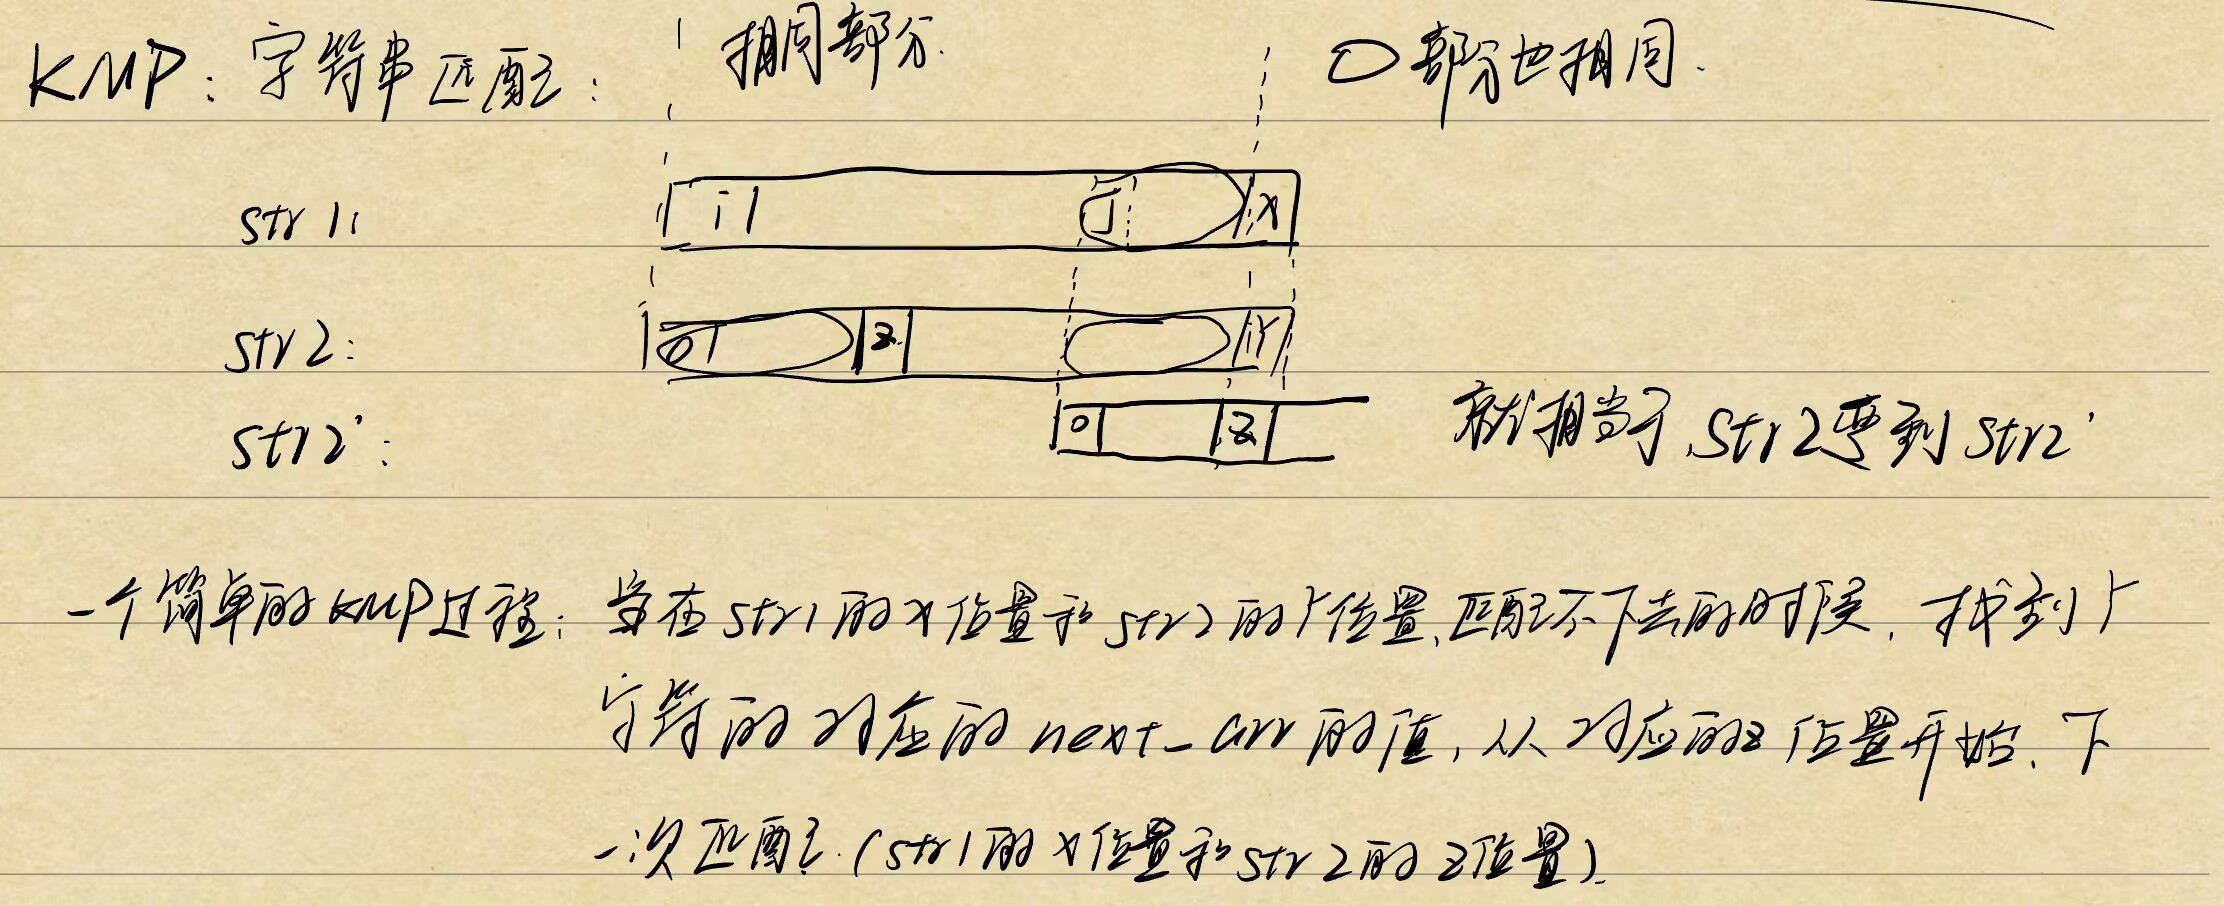 KMP: 字符串匹配: 相同部分. ○部分也相同.
str1: i j x
str2: 0 z Y
str2': 0 z 就相当于,str2要到str2'
一个简单的KMP过程: 当在str1的x位置和str2的Y位置,匹配不下去的时候,找到Y
字符的对应的next_arr的值,从对应的z位置开始,下
一次匹配.(str1的x位置和str2的z位置).